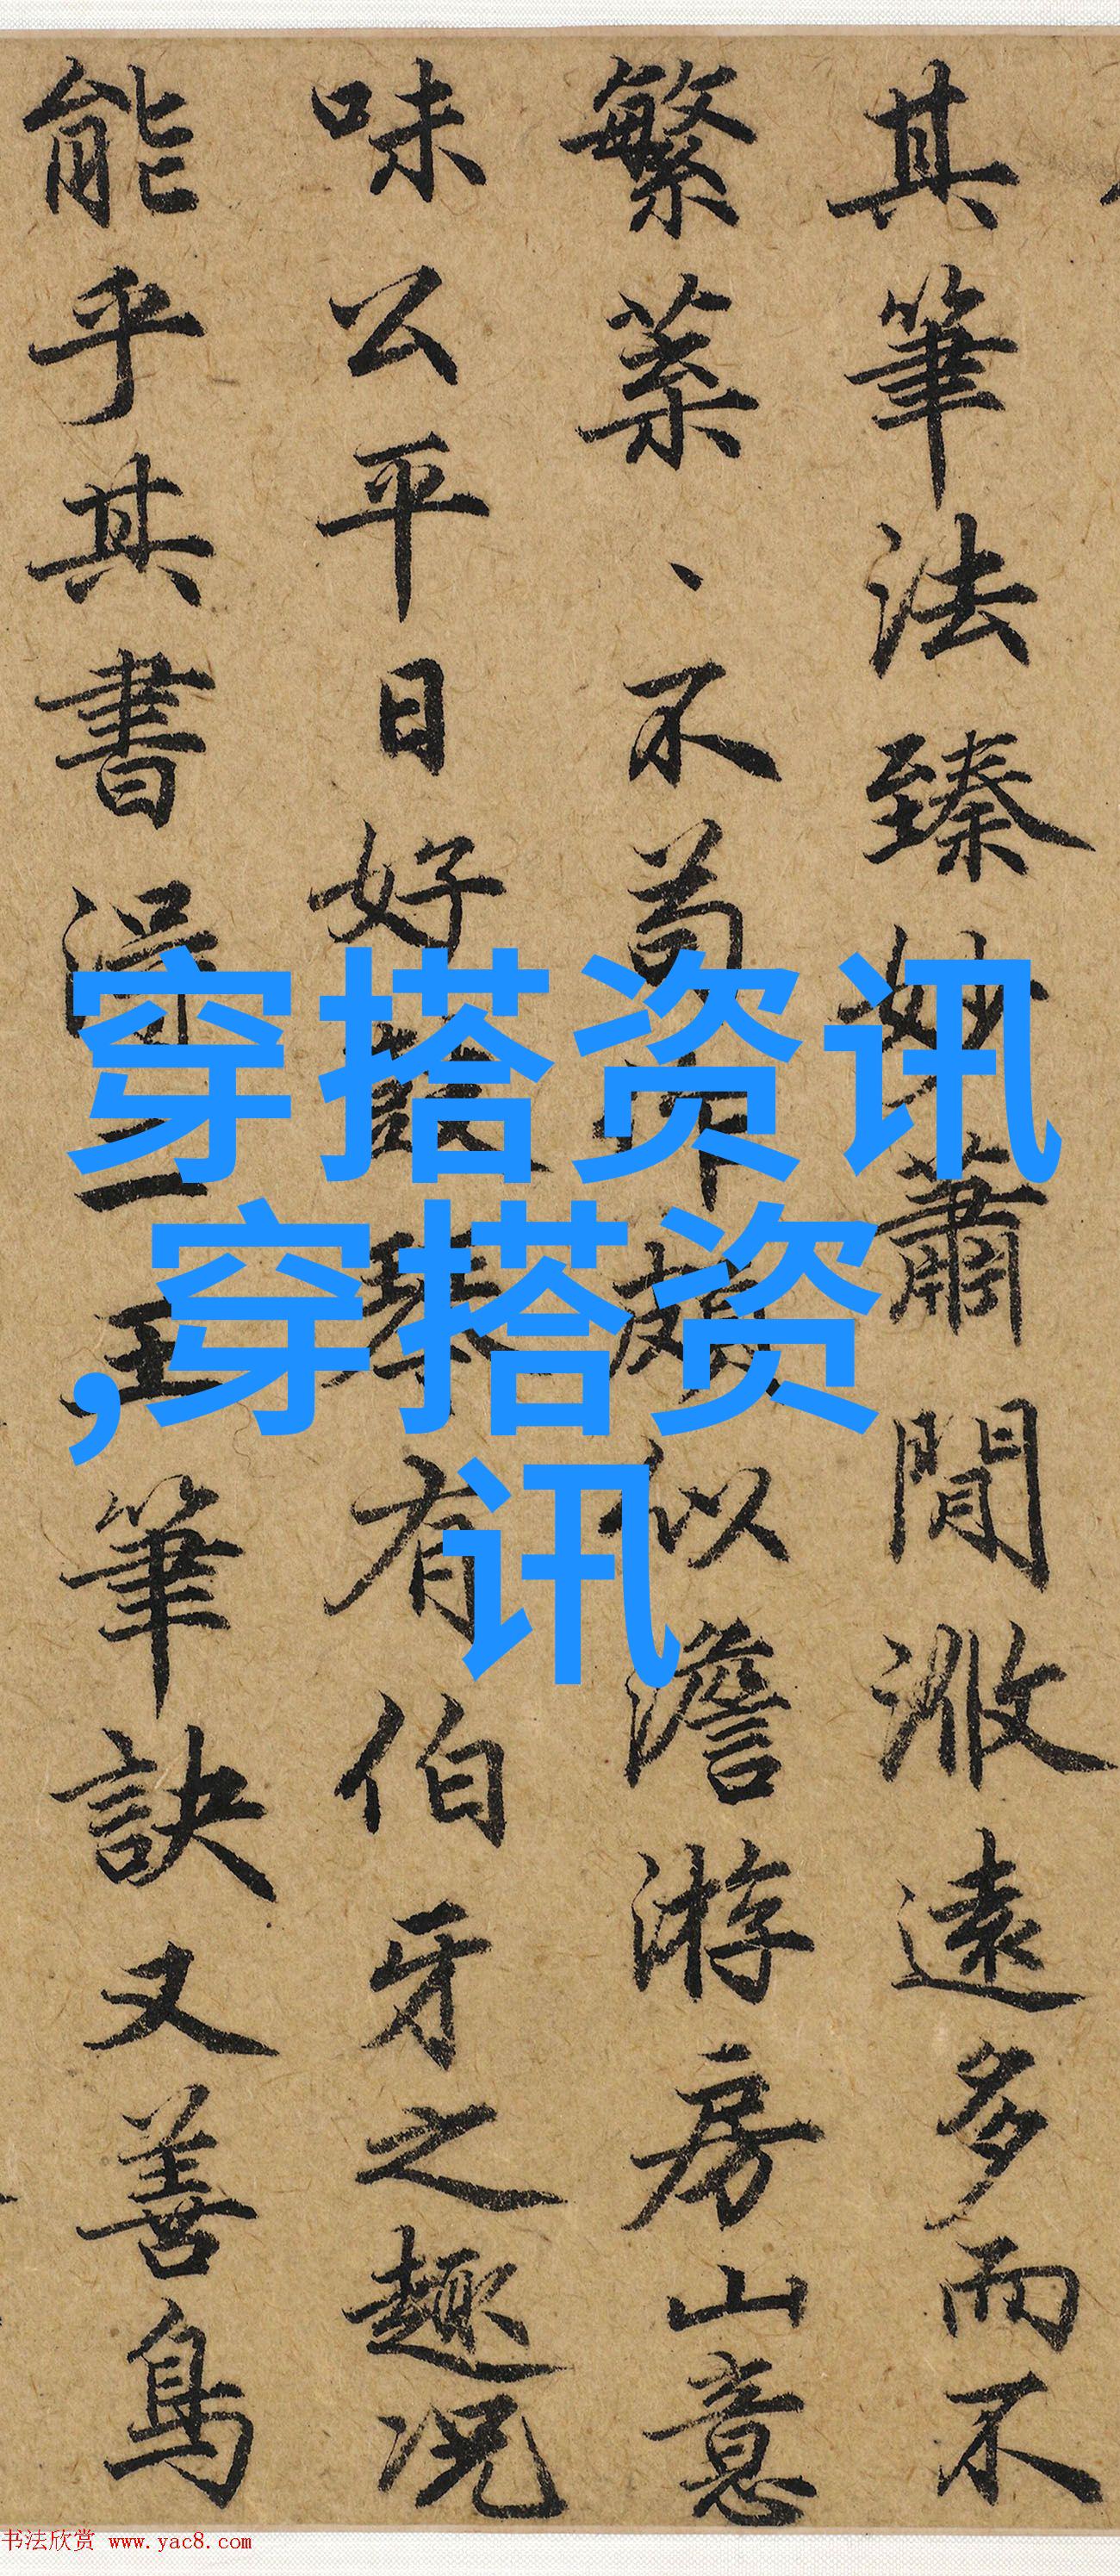 其筆法臻妙蕭閒遠多而不
繁葉、不苟作頗似澹游房山意
味公平日好鼓琴有伯牙之趣況
能乎其書得二王筆訣又善鳥
穿搭资讯
,穿搭资
讯
书法欣赏 www.yac8.com